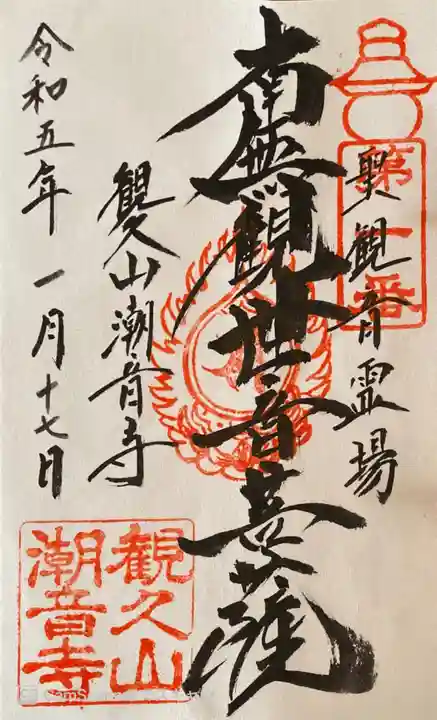 南無観世音菩薩
観音霊場
観久山潮音寺
令和五年一月十七日
観久山
潮音寺